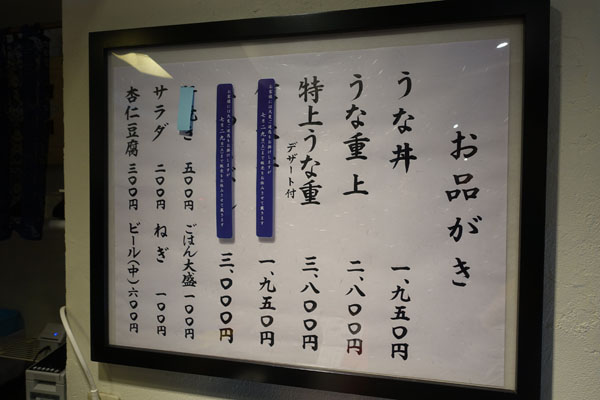 お品がき
うな丼 一、九五〇円
うな重 上 二、八〇〇円
特上うな重 デザート付 三、八〇〇円
一、九五〇円
三、〇〇〇円
き 五〇〇円 ごはん大盛 一〇〇円
サラダ 二〇〇円 ねぎ 一〇〇円
杏仁豆腐 三〇〇円 ビール(中) 六〇〇円